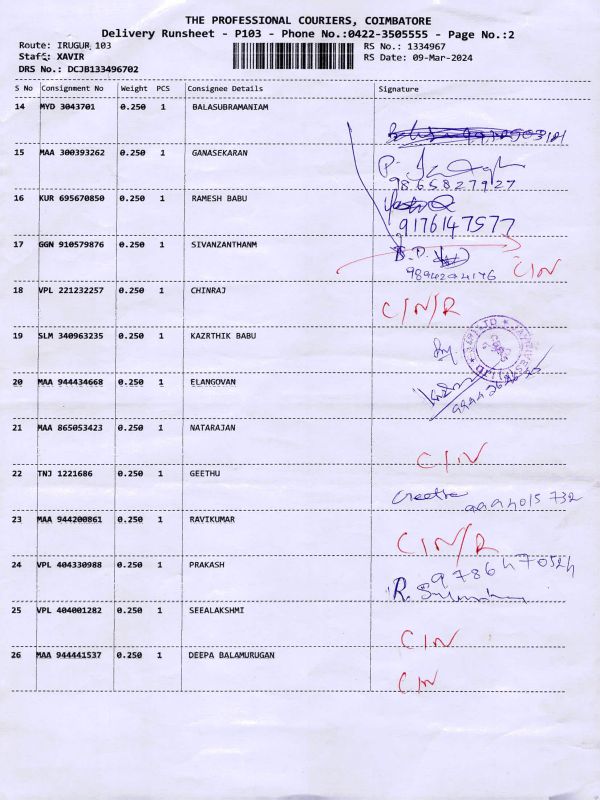 THE PROFESSIONAL COURIERS, COIMBATORE
Delivery Runsheet - P103 - Phone No.:0422-3505555 - Page No.:2
Route: IRUGUR 103
RS No.: 1334967
Staff: XAVIR
RS Date: 09-Mar-2024
DRS No.: DCJB133496702
S No Consignment No Weight PCS Consignee Details Signature
14 MYD 3043701 0.250 1 BALASUBRAMANIAM
15 MAA 300393262 0.250 1 GANASEKARAN
9865827927
16 KUR 695670850 0.250 1 RAMESH BABU
9176147577
17 GGN 910579876 0.250 1 SIVANZANTHANM
9894204176 C/N
18 VPL 221232257 0.250 1 CHINRAJ
C/N/R
19 SLM 340963235 0.250 1 KAZRTHIK BABU
20 MAA 944434668 0.250 1 ELANGOVAN
21 MAA 865053423 0.250 1 NATARAJAN
C/N
22 TNJ 1221686 0.250 1 GEETHU
Geetha 9994015732
23 MAA 944200861 0.250 1 RAVIKUMAR
C/N/R
24 VPL 404330988 0.250 1 PRAKASH
9786470524
25 VPL 404001282 0.250 1 SEEALAKSHMI
C/N
26 MAA 944441537 0.250 1 DEEPA BALAMURUGAN
C/N